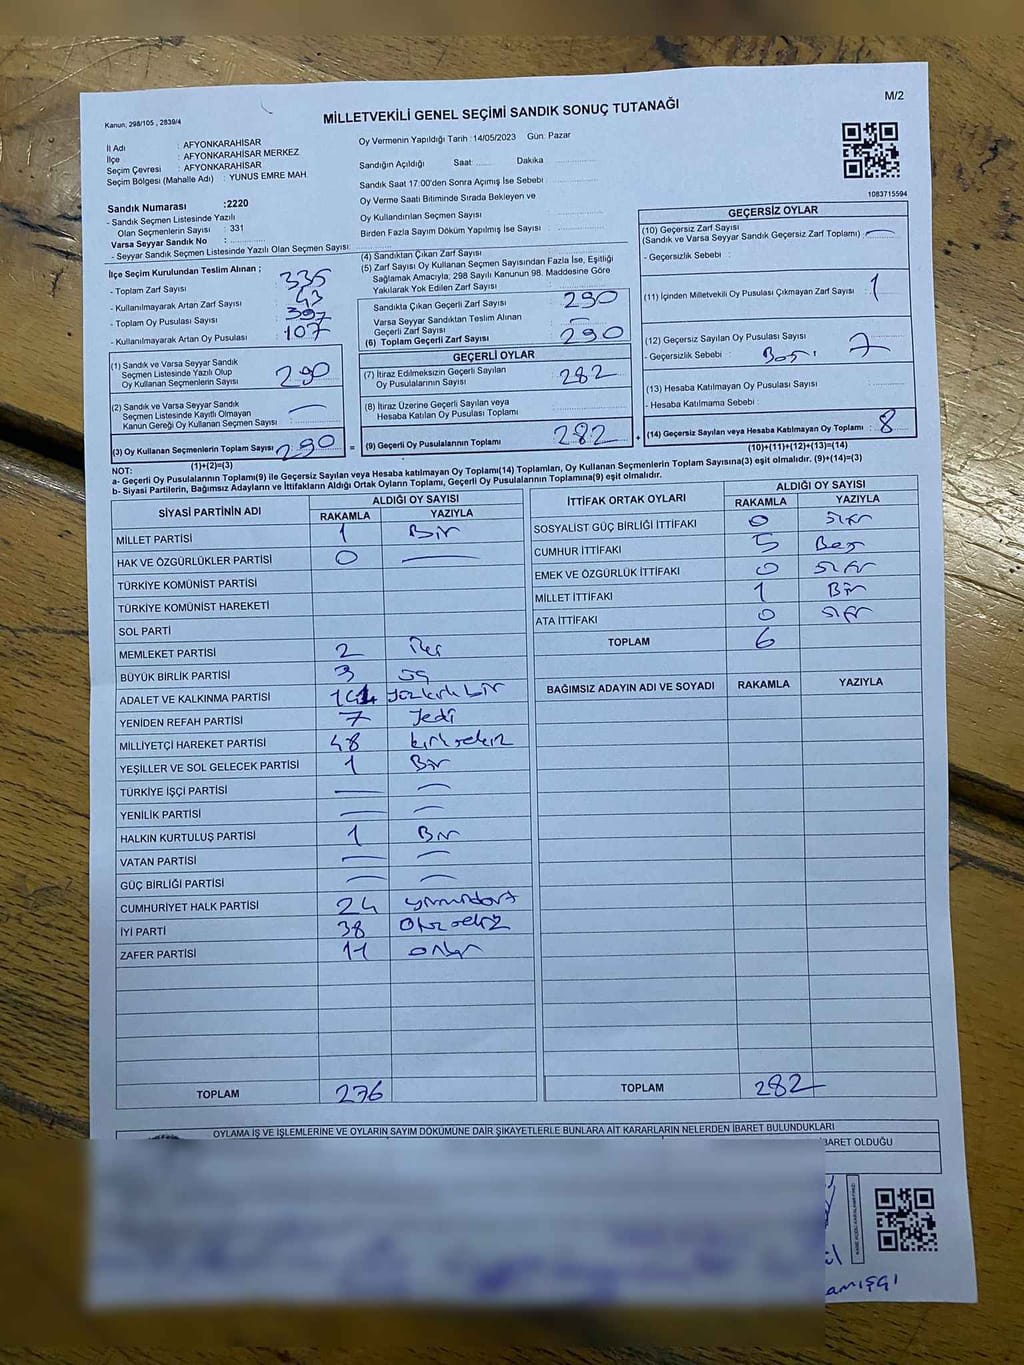 M/2
Kanun, 298/105 , 2839/4
MİLLETVEKİLİ GENEL SEÇİMİ SANDIK SONUÇ TUTANAĞI
İl Adı : AFYONKARAHİSAR
İlçe : AFYONKARAHİSAR MERKEZ
Seçim Çevresi : AFYONKARAHİSAR
Seçim Bölgesi (Mahalle Adı) : YUNUS EMRE MAH.
Sandık Numarası :2220
- Sandık Seçmen Listesinde Yazılı
Olan Seçmenlerin Sayısı : 331
Varsa Seyyar Sandık No :
- Seyyar Sandık Seçmen Listesinde Yazılı Olan Seçmen Sayısı:
Oy Vermenin Yapıldığı Tarih : 14/05/2023 Gün: Pazar
Sandığın Açıldığı Saat: Dakika
Sandık Saat 17:00'den Sonra Açımış İse Sebebi :
Oy Verme Saati Bitiminde Sırada Bekleyen ve
Oy Kullandırılan Seçmen Sayısı :
Birden Fazla Sayım Döküm Yapılmış İse Sayısı :
1083715594
İlçe Seçim Kurulundan Teslim Alınan ;
- Toplam Zarf Sayısı : 335
- Kullanılmayarak Artan Zarf Sayısı : 43
- Toplam Oy Pusulası Sayısı : 397
- Kullanılmayarak Artan Oy Pusulası : 107
(1) Sandık ve Varsa Seyyar Sandık
Seçmen Listesinde Yazılı Olup
Oy Kullanan Seçmenlerin Sayısı : 290
(2) Sandık ve Varsa Seyyar Sandık
Seçmen Listesinde Kayıtlı Olmayan
Kanun Gereği Oy Kullanan Seçmen Sayısı : —
(3) Oy Kullanan Seçmenlerin Toplam Sayısı : 290
(1)+(2)=(3)
(4) Sandıktan Çıkan Zarf Sayısı
(5) Zarf Sayısı Oy Kullanan Seçmen Sayısından Fazla İse, Eşitliği
Sağlamak Amacıyla; 298 Sayılı Kanunun 98. Maddesine Göre
Yakılarak Yok Edilen Zarf Sayısı :
Sandıkta Çıkan Geçerli Zarf Sayısı : 290
Varsa Seyyar Sandıktan Teslim Alınan
Geçerli Zarf Sayısı : —
(6) Toplam Geçerli Zarf Sayısı : 290
GEÇERLİ OYLAR
(7) İtiraz Edilmeksizin Geçerli Sayılan
Oy Pusulalarının Sayısı : 282
(8) İtiraz Üzerine Geçerli Sayılan veya
Hesaba Katılan Oy Pusulası Toplamı :
= (9) Geçerli Oy Pusulalarının Toplamı : 282
GEÇERSİZ OYLAR
(10) Geçersiz Zarf Sayısı
(Sandık ve Varsa Seyyar Sandık Geçersiz Zarf Toplamı) : —
- Geçersizlik Sebebi :
(11) İçinden Milletvekili Oy Pusulası Çıkmayan Zarf Sayısı : 1
(12) Geçersiz Sayılan Oy Pusulası Sayısı : 7
- Geçersizlik Sebebi : Boş
(13) Hesaba Katılmayan Oy Pusulası Sayısı :
- Hesaba Katılmama Sebebi :
+ (14) Geçersiz Sayılan veya Hesaba Katılmayan Oy Toplamı : 8
(10)+(11)+(12)+(13)=(14)
NOT:
a- Geçerli Oy Pusulalarının Toplamı(9) ile Geçersiz Sayılan veya Hesaba katılmayan Oy Toplamı(14) Toplamları, Oy Kullanan Seçmenlerin Toplam Sayısına(3) eşit olmalıdır. (9)+(14)=(3)
b- Siyasi Partilerin, Bağımsız Adayların ve İttifakların Aldığı Ortak Oyların Toplamı, Geçerli Oy Pusulalarının Toplamına(9) eşit olmalıdır.
SİYASİ PARTİNİN ADI ALDIĞI OY SAYISI
RAKAMLA YAZIYLA
MİLLET PARTİSİ 1 Bir
HAK VE ÖZGÜRLÜKLER PARTİSİ 0 —
TÜRKİYE KOMÜNİST PARTİSİ
TÜRKİYE KOMÜNİST HAREKETİ
SOL PARTİ
MEMLEKET PARTİSİ 2 İki
BÜYÜK BİRLİK PARTİSİ 3 üç
ADALET VE KALKINMA PARTİSİ 141 Yüzkırkbir
YENİDEN REFAH PARTİSİ 7 Yedi
MİLLİYETÇİ HAREKET PARTİSİ 48 kırksekiz
YEŞİLLER VE SOL GELECEK PARTİSİ 1 Bir
TÜRKİYE İŞÇİ PARTİSİ — —
YENİLİK PARTİSİ — —
HALKIN KURTULUŞ PARTİSİ 1 Bir
VATAN PARTİSİ — —
GÜÇ BİRLİĞİ PARTİSİ — —
CUMHURİYET HALK PARTİSİ 24 yirmidört
İYİ PARTİ 38 Otuzsekiz
ZAFER PARTİSİ 11 onbir
TOPLAM 276
İTTİFAK ORTAK OYLARI ALDIĞI OY SAYISI
RAKAMLA YAZIYLA
SOSYALİST GÜÇ BİRLİĞİ İTTİFAKI 0 sıfır
CUMHUR İTTİFAKI 5 Beş
EMEK VE ÖZGÜRLÜK İTTİFAKI 0 sıfır
MİLLET İTTİFAKI 1 Bir
ATA İTTİFAKI 0 sıfır
TOPLAM 6
BAĞIMSIZ ADAYIN ADI VE SOYADI RAKAMLA YAZIYLA
TOPLAM 282
OYLAMA İŞ VE İŞLEMLERİNE VE OYLARIN SAYIM DÖKÜMÜNE DAİR ŞİKAYETLERLE BUNLARA AİT KARARLARIN NELERDEN İBARET BULUNDUKLARI
BARET OLDUĞU